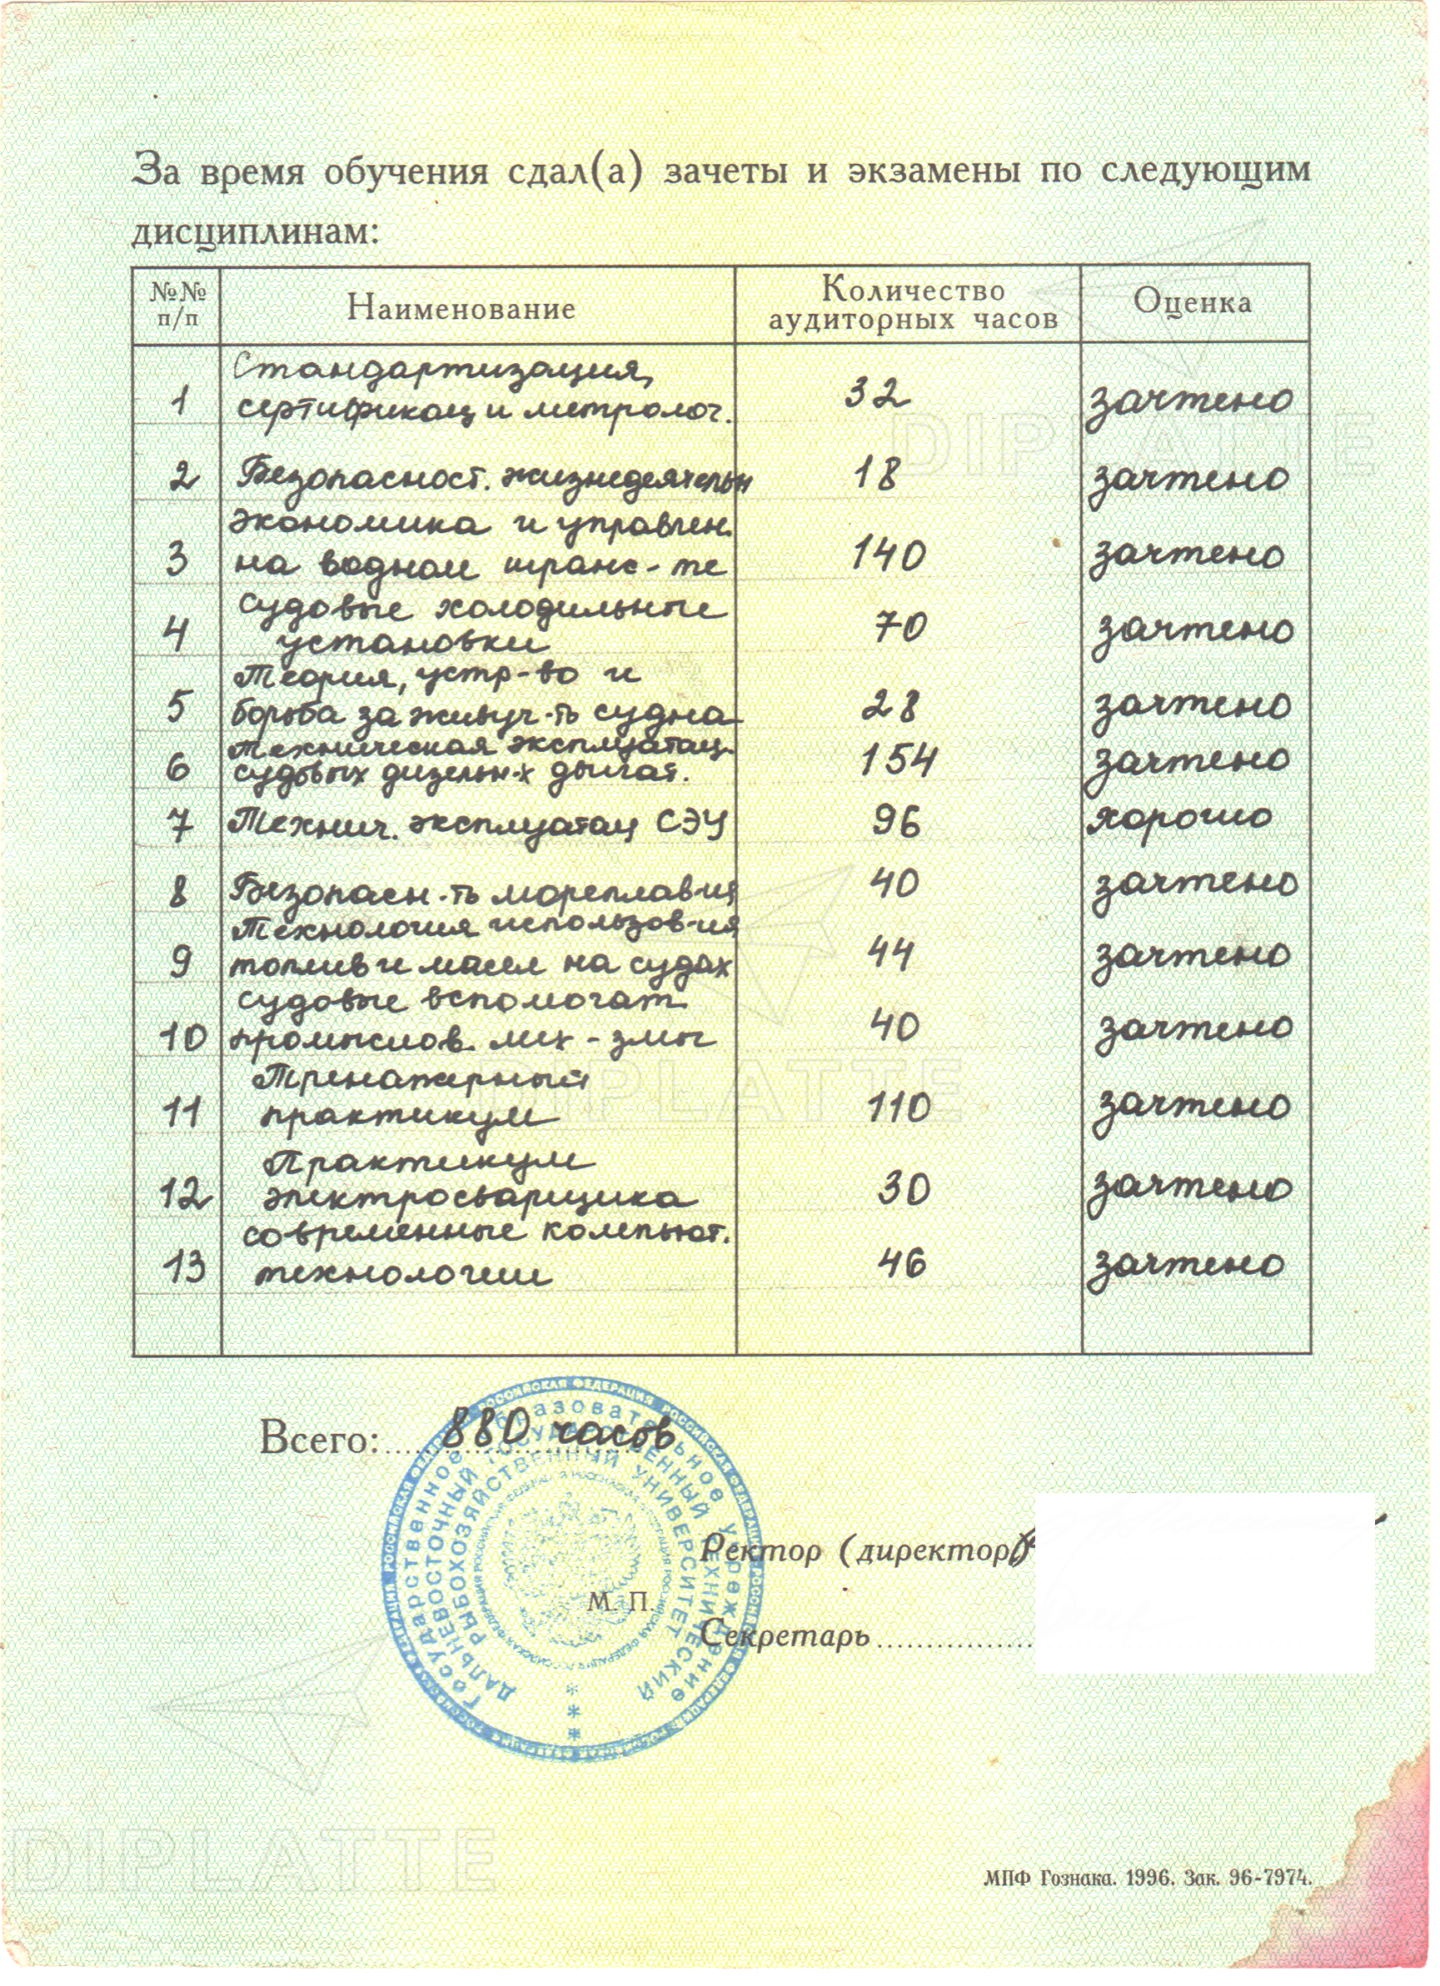 За время обучения сдал(а) зачеты и экзамены по следующим
дисциплинам:
№№ п/п Наименование Количество аудиторных часов Оценка
Стандартизация,
1 сертификац и метролог. 32 зачтено
2 Безопасност. жизнедеятельн 18 зачтено
экономика и управлен.
3 на водном транс-те 140 зачтено
судовые холодильные
4 установки 70 зачтено
Теория, устр-во и
5 борьба за живуч-ть судна 28 зачтено
Техническая эксплуатац.
6 судовых дизельн-х двигат. 154 зачтено
7 Технич. эксплуатац СЭУ 96 хорошо
8 Безопасн-ть мореплав-ия 40 зачтено
Технология использов-ия
9 топлив и масел на судах 44 зачтено
судовые вспомогат.
10 промыслов. мех-змы 40 зачтено
Тренажерный
11 практикум 110 зачтено
Практикум
12 электросварщика 30 зачтено
современные компьют.
13 технологии 46 зачтено
Всего: 880 часов
Ректор (директор)
М. П.
Секретарь
Государственное образовательное учреждение
ДАЛЬНЕВОСТОЧНЫЙ ГОСУДАРСТВЕННЫЙ ТЕХНИЧЕСКИЙ
РЫБОХОЗЯЙСТВЕННЫЙ УНИВЕРСИТЕТ
РОССИЙСКАЯ ФЕДЕРАЦИЯ
МПФ Гознака. 1996. Зак. 96-7974.
DIPLATTE
DIPLATTE
DIPLATTE